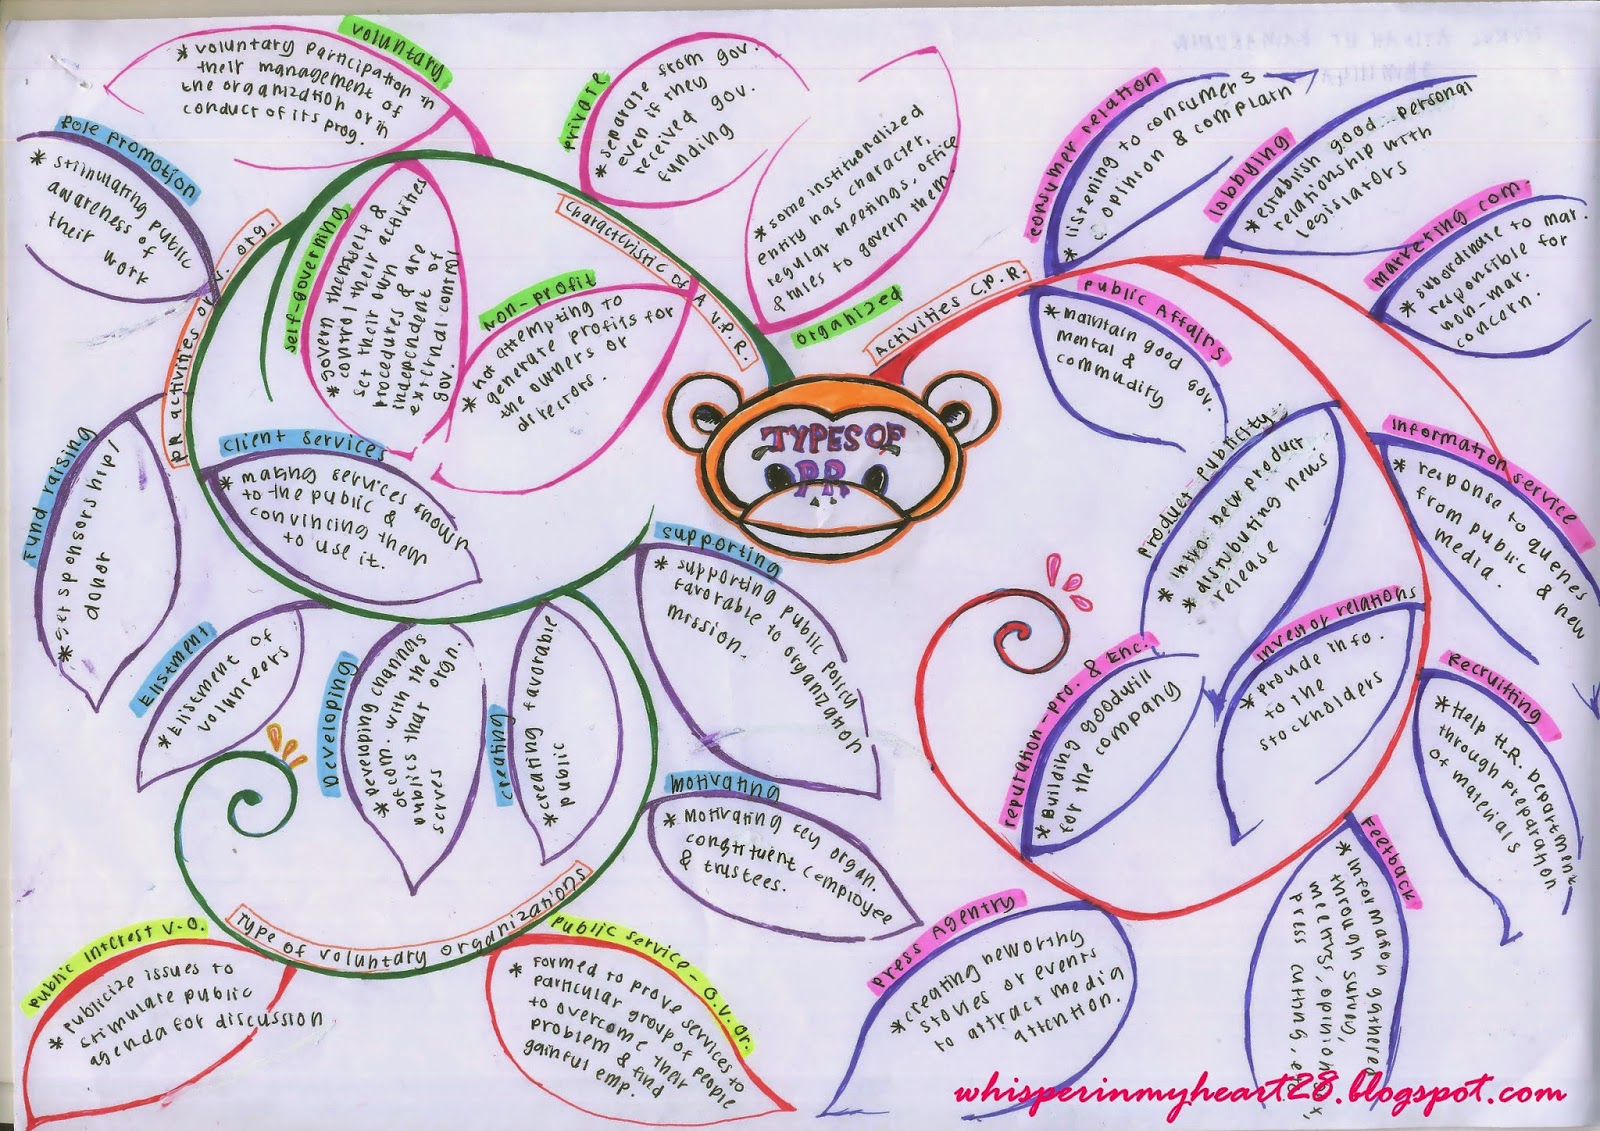 TYPES OF
PR
Characteristic of A V.P.R.
voluntary
* voluntary participation in
their management of
the organization or in
conduct of its prog.
private
* separate from gov.
even if they
received gov.
funding
organized
* some institutionalized
entity has character,
regular meetings, office
& rules to govern them.
self-governing
* govern themself &
control their activities
set their own
procedures & are
independent of
external control
gov. control
Non-profit
* not attempting to
generate profits for
the owners or
directors.
PR activities of V. org.
Role promotion
* stimulating public
awareness of
their work
Fund raising
* Get sponsorship/
donor
client services
* making services known
to the public &
convincing them
to use it.
Elistment
* Elistment of
volunteers
Developing
* developing channels
of com. with the
publics that orgn.
serves
creating
* creating favorable
public
supporting
* supporting public policy
favorable to organization
mission.
motivating
* Motivating key organ.
constituent (employee
& trustees.
Type of voluntary organizations
Public interest V.O.
* publicize issues to
stimulate public
agenda for discussion
public service - O.V. or.
* Formed to prove services to
particular group of people
to overcome their
problem & find
gainful emp.
Activities C.P.R.
consumer relation
* listening to consumers
opinion & complain
lobbying
* establish good personal
relationship with
legislators
marketing com.
* subordinate to mar.
responsible for
non-mar.
concern.
public Affairs
* maintain good gov.
mental &
commudity
Product publicity
* intro new product
* distributing news
release
information service
* response to quenes
from public & new
media.
investor relations
* provde info.
to the
stockholders
Recruitting
* Help H.R. Department
through preparation
of materials
reputation-pro. & Enc.
* Building goodwill
for the company
Feetback
* information gathered
through survey,
meetings, opinion
press cutting,
press Agentry
* creating neworthy
stories or events
to attract media
attention.
whisperinmyheart28.blogspot.com